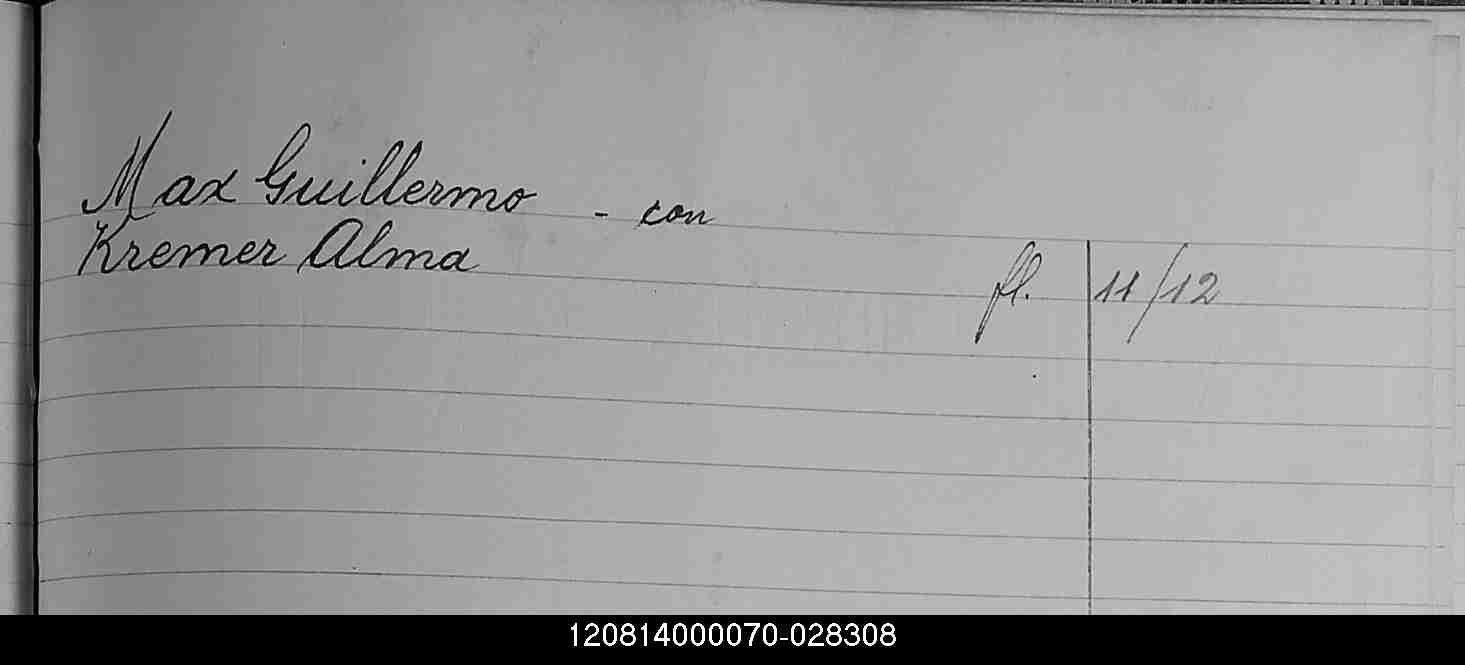 Max Guillermo - con
Kremer Alma
fl. 11/12
120814000070-028308